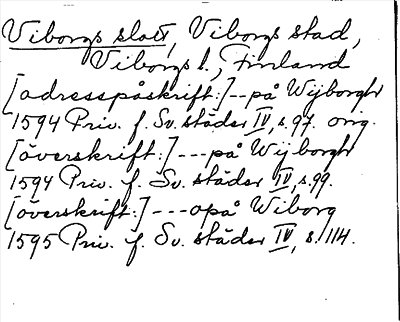 Viborgs slott, Viborgs stad,
Viborgs l., Finland
[adresspåskrift:]--på Wijborgh
1594 Priv. f. Sv. städer IV, s. 97. orig.
[överskrift:]---på Wijborgh
1594 Priv. f. Sv. städer IV, s. 99.
[överskrift:]---opå Wiborg
1595 Priv. f. Sv. städer IV, s. 114.